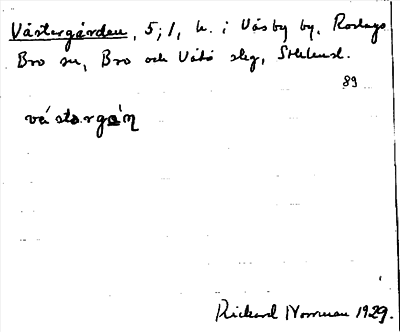 Västergården, 5;1, h. i Väsby by, Roslags
Bro sn, Bro och Vätö slg, Sthlmsl.
89
västərgɑ́ɳ
Rickard Norrman 1929.